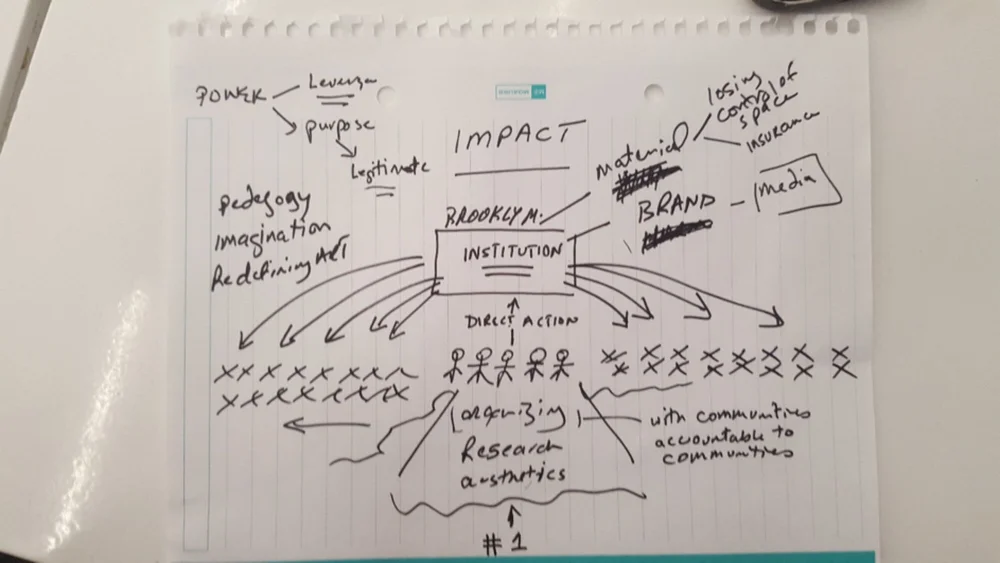 POWER
Leverage
purpose
Legitimate
IMPACT
material
losing
control of
space
insurance
BRAND
media
pedagogy
imagination
Redefining ART
BROOKLYN M.
INSTITUTION
DIRECT ACTION
organizing
Research
aesthetics
with communities
accountable to
communities
#1